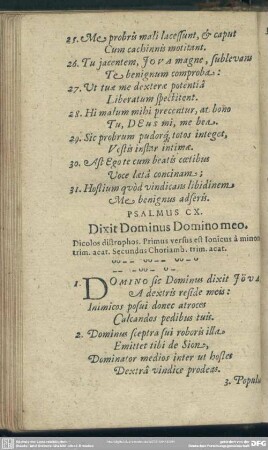 25. Me probris mali lacessunt, & caput
Cum cachinnis motitant.
26. Tu jacentem, JOVA magne, sublevans
Te benignum comproba:
27. Ut tuæ me dexteræ potentiâ
Liberatum spectitent.
28. Hi malum mihi precentur, at bono
Tu, DEus mi, me bea.
29. Sic probrum pudorq; totos integet,
Vestis instar intimæ.
30. Ast Ego te cum beatis cœtibus
Voce lætâ concinam;
31. Hostium quòd vindicans libidinem
Me benignus adseris.
PSALMUS CX.
Dixit Dominus Domino meo.
Dicolos distrophos. Primus versus est Ionicus â minori
trim. acat. Secundus Choriamb. trim. acat.
1. DOMINO sic Dominus dixit Jöva
A dextris reside meis:
Inimicos posui donec atroces
Calcandos pedibus tuis.
2. Dominus sceptra sui roboris illa
Emittet tibi de Sion,
Dominator medios inter ut hostes
Dextrâ vindice prodeas.
3. Populu